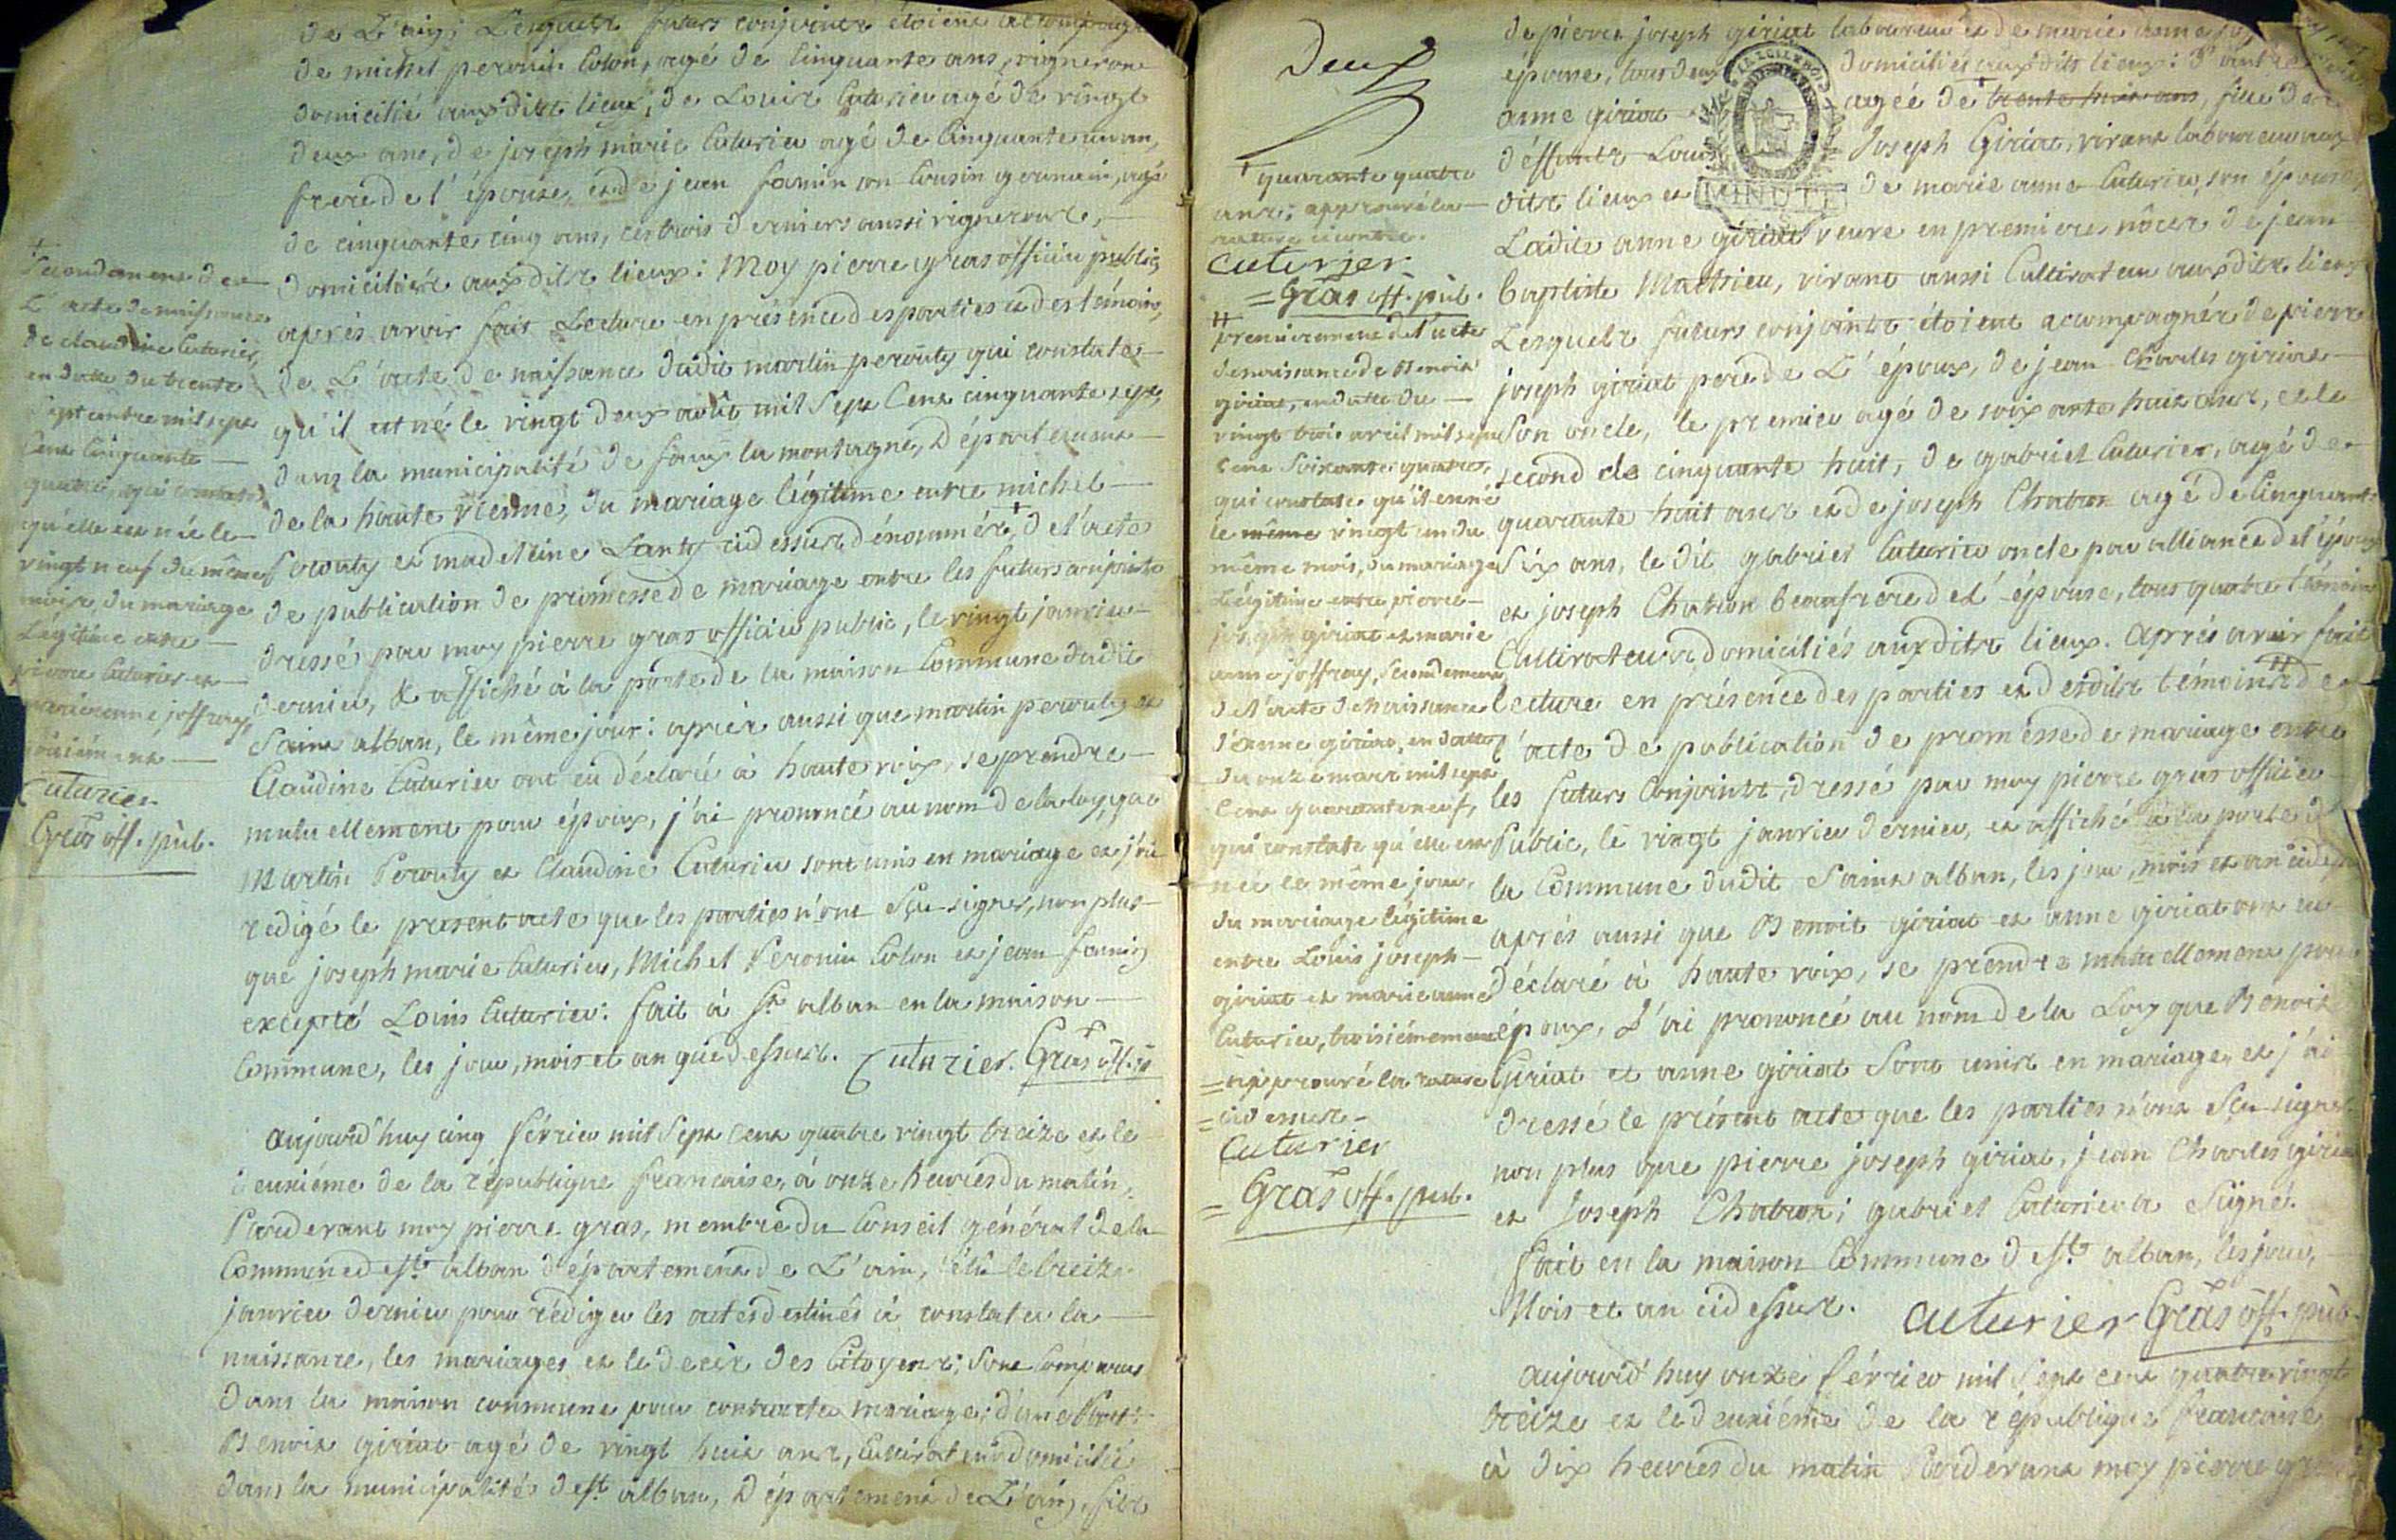 de L'ain; Lesquels futurs conjoints étoient accompagnés
de michel peronin Colon, agé de Cinquante ans, vigneron
domicilié auxdits lieux, de Louis Cuturier agé de vingt
deux ans, de joseph marie Cuturier agé de Cinquante un an,
frere de l'épouse, et de jean famin son Cousin germain, agé
de cinquante cinq ans, les trois derniers aussi vignerons,
domiciliés auxdits lieux: Moy pierre gras officier public,
après avoir fait Lecture en présence des parties et des témoins,
de L'acte de naissance dudit martin perouty qui constate
qu'il est né le vingt deux août mil Sept Cent cinquante sept,
dans la municipalité de faux la montagne, Département
de la haute vienne, du mariage légitime entre michel
Perouty et madeleine Lanty cidessus dénommés, + de l'acte
de publication de promesse de mariage entre les futurs conjoints
dressé par moy pierre gras officier public, le vingt janvier
dernier, & affiché à la porte de la maison Commune dudit
Saint alban, le même jour: après aussi que martin perouty et
Claudine Cuturier ont eu déclaré à haute voix, se prendre
mutuellement pour époux, j'ai prononcé au nom de la loy, que
Martin Perouty et Claudine Cuturier sont unis en mariage et j'ai
redigé le present acte que les parties n'ont Sçu signer, non plus
que joseph marie Cuturier, Michel Peronin Colon et jean famin,
excepté Louis Cuturier: fait à St alban en la maison
Commune, les jour, mois et an que dessus. Cuturier. Gras off. p.
+
Secondement de
L'acte de naissance
de claudine Cuturier,
en datte du trente
Septembre mil sept
Cent Cinquante
quatre, qui constate
qu'elle est née le
vingt neuf du même
mois, du mariage
Légitime entre
pierre Cuturier et
marie anne joffray,
Cuturier
Gras off. pub.
aujourd'huy cinq février mil Sept Cent quatre vingt treize et le
deuxiéme de la république francaise, à onze heures du matin,
Pardevant moy pierre gras, membre du Conseil général de la
Commune de St. alban département de L'ain, élû le treize
janvier dernier pour rédiger les actes destinés à constater la
naissance, les mariages et le decès des Citoyens; Sont Comparus
dans la maison commune pour contracter mariage; d'une Part:
Benoit giriat agé de vingt huit ans, Cultivateur domicilié
dans la municipalité de St alban, Département de L'ain, fils
Deux
de pierre joseph giriat laboureur et de marie anne
épouse, tous deux domiciliés auxdits lieux: d'autre
anne giriat agée de + trente huit ans, fille de
déffunts Louis Joseph Giriat, vivant laboureur aux
dits lieux et de marie anne Cuturier, son épouse,
MINUTE
Ladite anne giriat veuve en premieres nôces de jean
baptiste Mathieu, vivant aussi Cultivateur auxdits lieux
Lesquels futurs conjoints étoient acompagnés de pierre
joseph giriat pere de L'époux, de jean Charles giriat
Son oncle, le premier agé de soixante huit ans, et le
second de cinquante huit, de gabriel Cuturier, agé de
quarante huit ans et de joseph Chatron agé de Cinquante
Six ans, le dit gabriel Cuturier oncle par alliance de l'épouse
et joseph Chatron beaufrere de L'épouse, tous quatre témoins
Cultivateurs domiciliés auxdits lieux. Après avoir fait
lecture en présence des parties et desdits témoins # de
l'acte de publication de promesse de mariage entre
les futurs Conjoints, dressé par moy pierre gras officier
Public, le vingt janvier dernier, et affiché à la porte de
la Commune dudit Saint alban, les jour, mois et an
après aussi que Benoit giriat et anne giriat ont eu
déclaré à haute voix, se prendre mutuellement pour
époux, J'ai prononcé au nom de la Loy que Benoit
Giriat et anne giriat Sont unis en mariage, et j'ai
dressé le présent acte que les parties n'ont Sçu signer
non plus que pierre joseph giriat, jean Charles giriat
et Joseph Chatron; gabriel Cuturier a Signé.
fait en la maison Commune de St. alban, les jour,
Mois et an cidessus. Cuturier Gras off. pub.
+ quarante quatre
ans; approuvé la
rature ci contre.
Cuturier
= Gras off. pub.
# premierement de l'acte
de naissance de Benoit
giriat, en datte du
vingt trois avril mil sept
Cent Soixante quatre,
qui constate qu'il est né
le même vingt un du
même mois, du mariage
Légitime entre pierre
joseph giriat et marie
anne joffray, Secondement
de l'acte de naissance
d'anne giriat, en datte
du onze mars mil sept
Cent quarante neuf,
qui constate qu'elle est
née le même jour,
du mariage légitime
entre Louis joseph
giriat et marie anne
Cuturier, troisiémement
= approuvé la rature
= cidessus
Cuturier
= Gras off. pub.
aujourd'huy onze février mil Sept cent quatre vingt
treize et le deuxiéme de la république francaise
à dix heures du matin Pardevant moy pierre